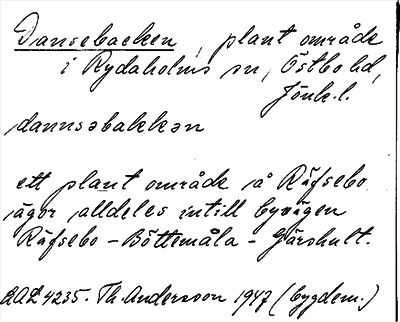 Dansebacken, plant område
i Rydaholms sn, Östbo hd,
Jönk. l.
dannsəbakkən
ett plant område på Räfsebo
ägor alldeles intill byvägen
Räfsebo - Böttemåla - Gårshult.
AAL 4235. Th. Andersson 1947 (bygdem.)